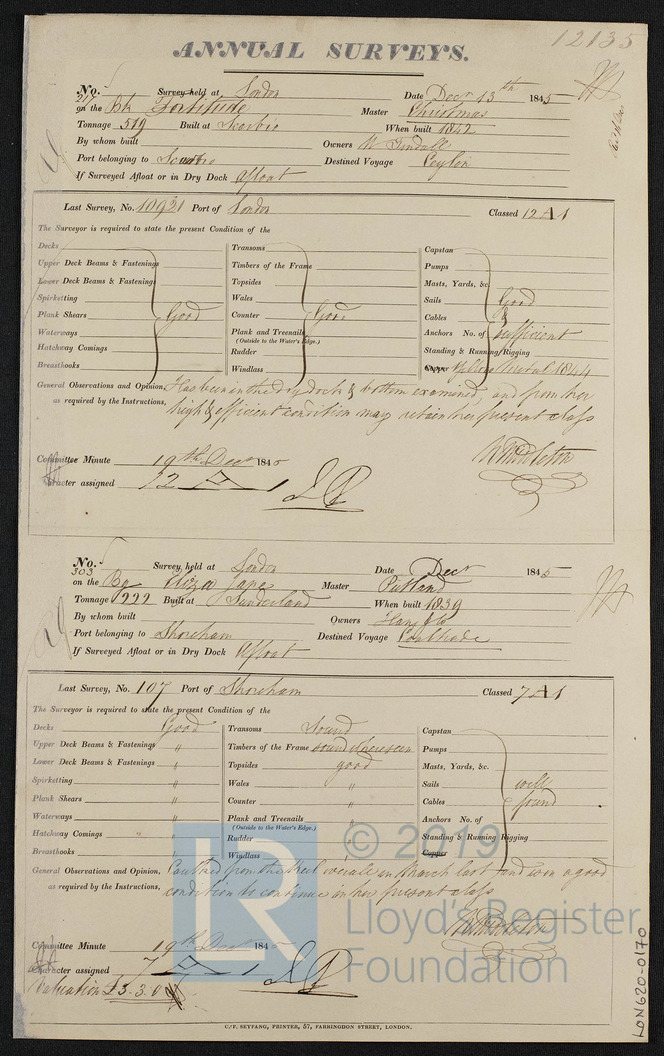 12135
ANNUAL SURVEYS.
No. 217 Survey held at London Date Decr 13th 1845
on the Bk Fortitude Master Christmas
Tonnage 519 Built at Scarbro When built 1842
By whom built Owners W Tindall
Port belonging to Scarbro Destined Voyage Ceylon
If Surveyed Afloat or in Dry Dock Afloat
Last Survey, No. 10921 Port of London Classed 12 A 1
The Surveyor is required to state the present Condition of the
Decks Transoms Capstan
Upper Deck Beams & Fastenings Timbers of the Frame Pumps
Lower Deck Beams & Fastenings Topsides Masts, Yards, &c.
Spirketting Wales Sails Good
Plank Shears Good Counter Good Cables &
Waterways Plank and Treenails Anchors No. of sufficient
(Outside to the Water's Edge.)
Hatchway Comings Rudder Standing & Running Rigging
Breasthooks Windlass Copper Yellow Metal 1844
General Observations and Opinion, Has been in the dry dock & bottom examined, and from her
as required by the Instructions, high & efficient condition may retain her present class
W Middleton
Committee Minute 19th Decr 1845
Character assigned 12 A 1
No. 303 Survey held at London Date Decr 1845
on the Bg Eliza Jane Master Pittand
Tonnage 222 Built at Sunderland When built 1839
By whom built Owners
Port belonging to Shoreham Destined Voyage
If Surveyed Afloat or in Dry Dock Afloat
Last Survey, No. 107 Port of Shoreham Classed 7 A 1
The Surveyor is required to state the present Condition of the
Decks Good Transoms Sound Capstan
Upper Deck Beams & Fastenings " Timbers of the Frame sound where seen Pumps
Lower Deck Beams & Fastenings " Topsides good Masts, Yards, &c.
Spirketting " Wales " Sails well
Plank Shears " Counter " Cables found
Waterways " Plank and Treenails Anchors No. of
(Outside to the Water's Edge.)
Hatchway Comings " Rudder Standing & Running Rigging
Breasthooks " Windlass Copper
General Observations and Opinion, Caulked from the Keel overall in March last and is in a good
as required by the Instructions, condition to continue in her present class
W Middleton
Committee Minute 19th Decr 1845
Character assigned 7 A 1
Valuation £3.3.0
C. F. SEYFANG, PRINTER, 57, FARRINGDON STREET, LONDON.
LR © 2019
Lloyd's Register
Foundation
LON620-0170